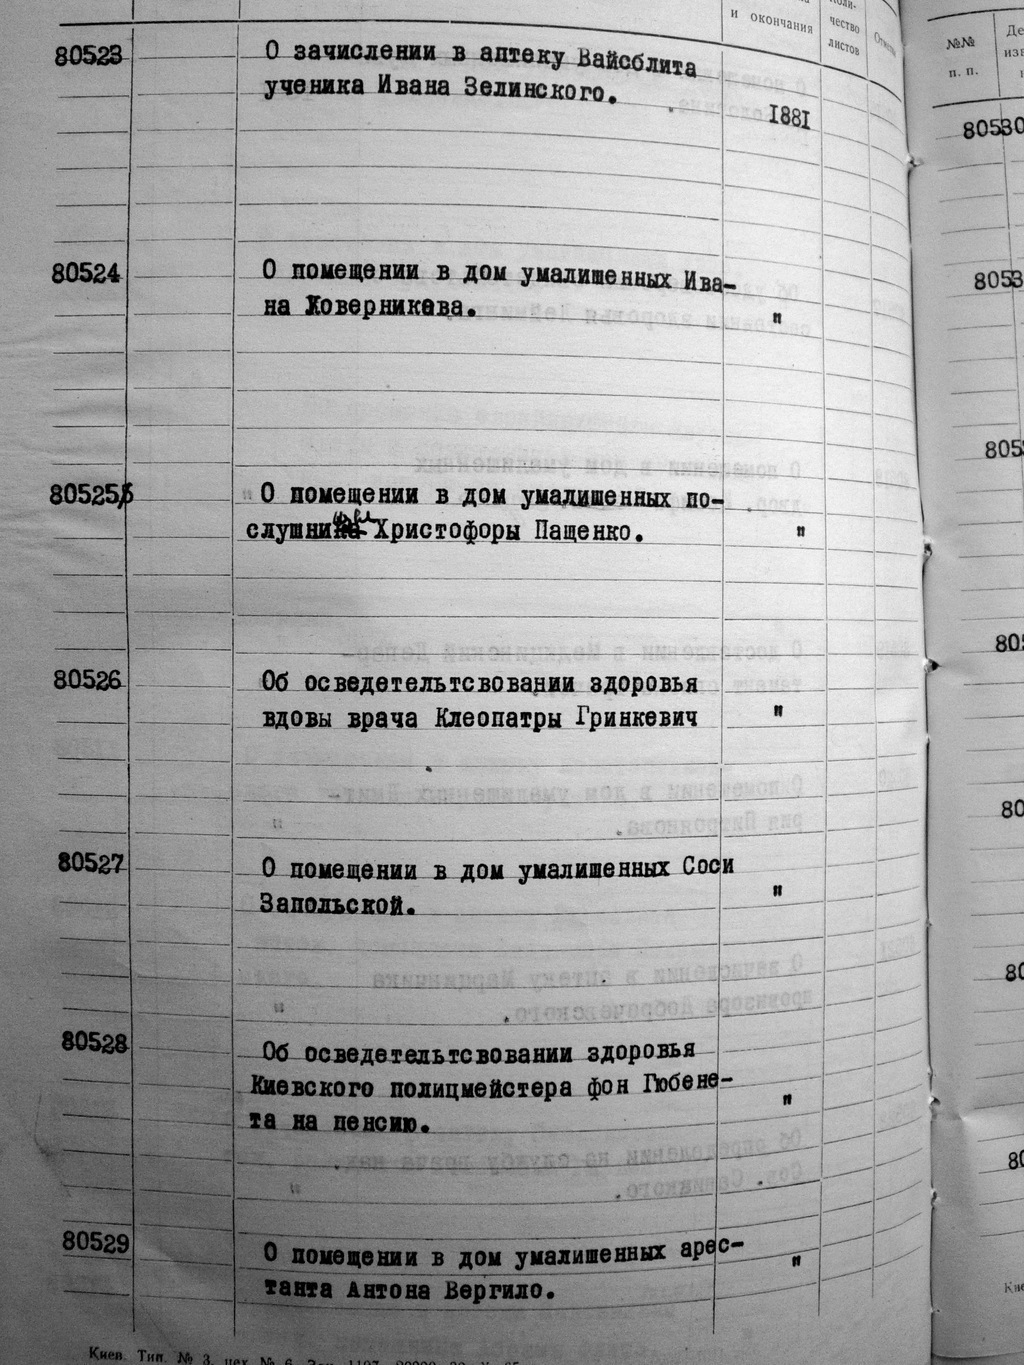 и окончания
чество
листов
80523
О зачислении в аптеку Вайсблита
ученика Ивана Зелинского.
1881
80524
О помещении в дом умалишенных Ива-
на Ховерникова.
"
80525
О помещении в дом умалишенных по-
слушни Христофоры Пащенко.
"
80526
Об осведетельтсвовании здоровья
вдовы врача Клеопатры Гринкевич
"
80527
О помещении в дом умалишенных Соси
Запольской.
"
80528
Об осведетельтсвовании здоровья
Киевского полицмейстера фон Гюбене-
та на пенсию.
"
80529
О помещении в дом умалишенных арес-
танта Антона Вергило.
"
Киев. Тип. № 3, цех № 6
№№
п. п.
80530